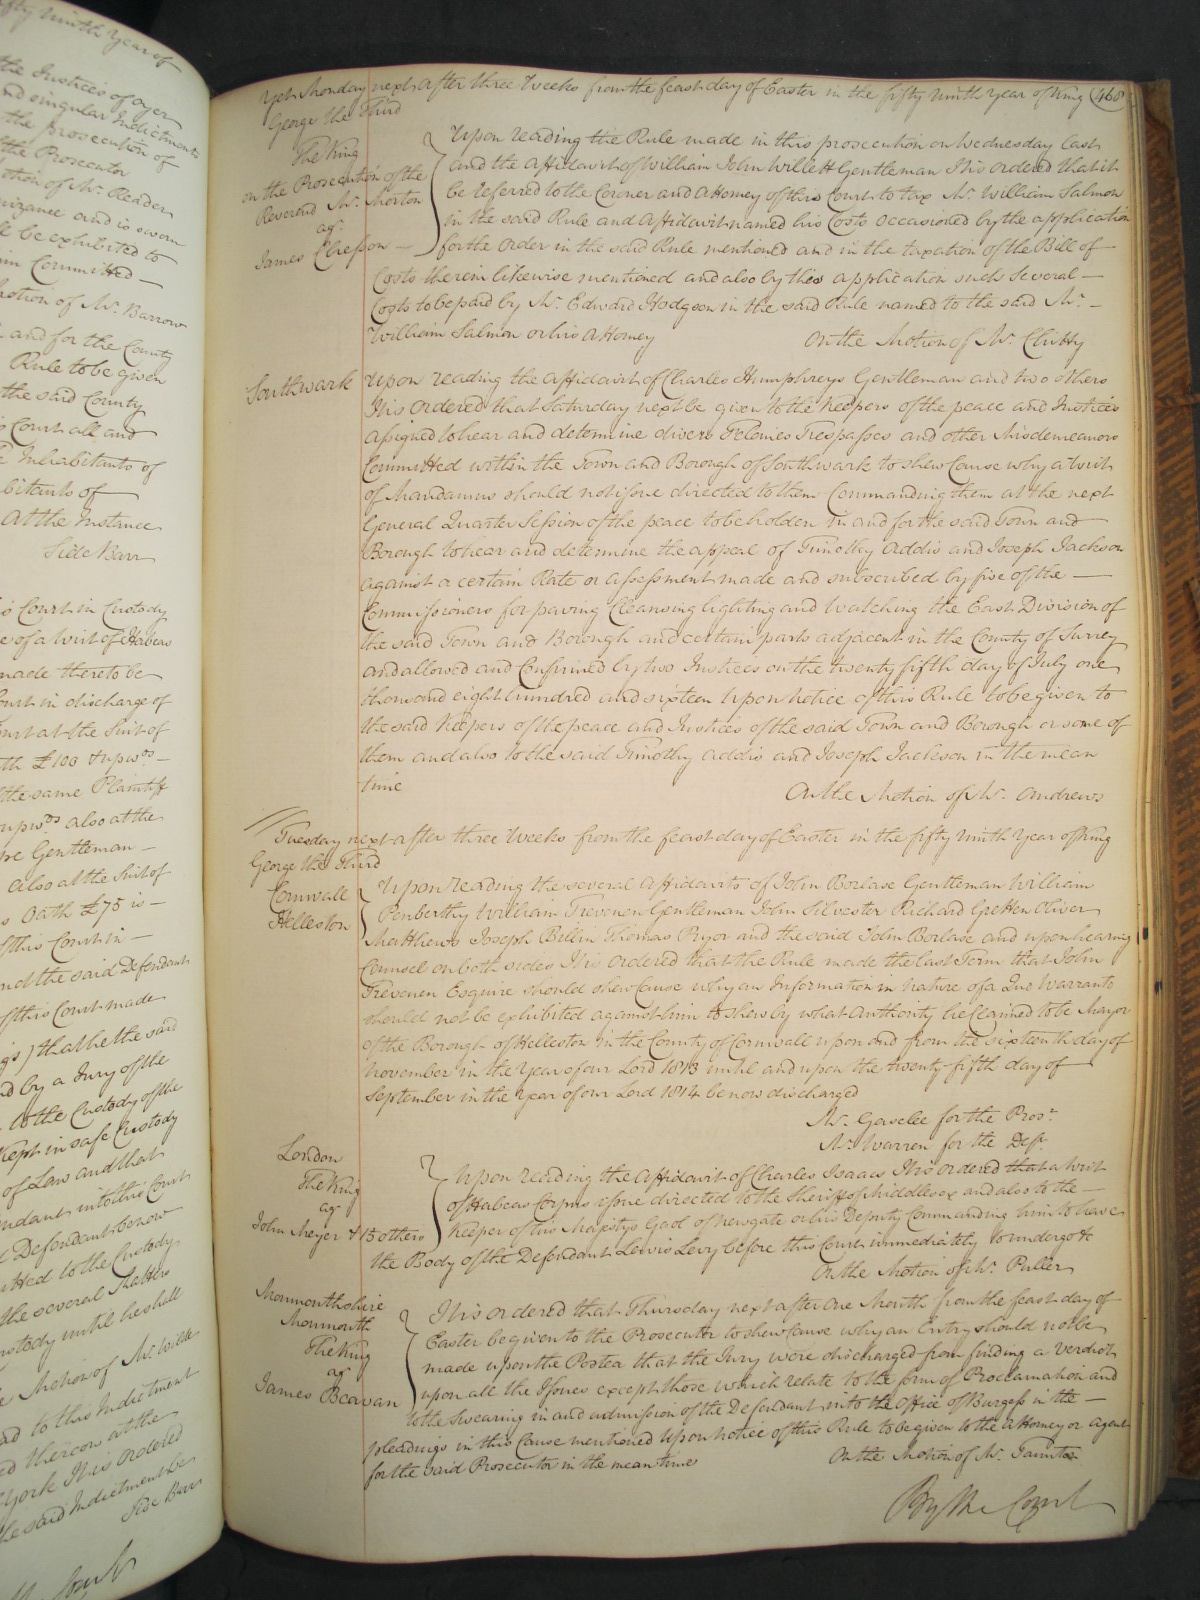 fifty ninth Year of
the Justices of Oyer
and singular Indictments
the prosecution of
the Prosecutor
otion of Mr. Reader
nizance and is sworn
be exhibited to
Committed
Motion of Mr. Barrow
and for the County
Rule to be given
the said County
Court all and
Inhabitants of
bitants of
At the Instance
Side Barr
Court in Custody
e of a Writ of Habeas
made thereto be
Court in discharge of
Court at the Suit of
th £100 & upwds
the same Plaintiff
upwds also at the
re Gentleman
also at the Suit of
s Oath £75 is
of this Court in
and the said Defendant
of this Court made
) that he the said
d by a Jury of the
to the Custody of the
Kept in safe Custody
of Law and that
endant into this Court
Defendant be now
itted to the Custody
the several Matters
ustody until he shall
Motion of Mr. Wilde
ad to this Indictment
ed thereon at the
York It is Ordered
the said Indictment be
Side Barr
Court
Yet Monday next after three Weeks from the feast day of Easter in the fifty ninth Year of King 468
George the Third
The King
on the Prosecution of the
Reverend Mr. Morton
agt.
James Chesson
Upon reading the Rule made in this prosecution on Wednesday last
and the Affidavit of William John Willett Gentleman It is Ordered that it
be referred to the Coroner and Attorney of this Court to tax Mr. William Salmon
in the said Rule and Affidavit named his Costs Occasioned by the application
for the Order in the said Rule mentioned and in the taxation of the Bill of
Costs therein likewise mentioned and also by this application such several
Costs to be paid by Mr. Edward Hodgson in the said Rule named to the said Mr.
William Salmon or his Attorney
On the Motion of Mr. Chitty
Southwark
Upon reading the Affidavit of Charles Humphreys Gentleman and two others
It is Ordered that Saturday next be given to the Keepers of the peace and Justices
Assigned to hear and determine divers Felonies Trespasses and other Misdemeanors
Committed within the Town and Borough of Southwark to shew Cause why a Writ
of Mandamus should not issue directed to them Commanding them at the next
General Quarter Session of the peace to be holden in and for the said Town and
Borough to hear and determine the appeal of Timothy Addis and Joseph Jackson
against a certain Rate or Assessment made and subscribed by five of the
Commissioners for paving Cleansing lighting and Watching the East Division of
the said Town and Borough and certain parts adjacent in the County of Surrey
and allowed and Confirmed by two Justices on the twenty fifth day of July one
thousand eight hundred and sixteen Upon Notice of this Rule to be given to
the said Keepers of the peace and Justices of the said Town and Borough or some of
them and also to the said Timothy Addis and Joseph Jackson in the mean
time
On the Motion of Mr. Andrews
Tuesday next after three Weeks from the feast day of Easter in the fifty ninth Year of King
George the Third
Cornwall
Helleston
Upon reading the several Affidavits of John Borlase Gentleman William
Penberthy William Trevenen Gentleman John Silvester Richard Gretten Oliver
Matthews Joseph Billin Thomas Pryor and the said John Borlase and upon hearing
Counsel on both sides It is Ordered that the Rule made the last Term that John
Trevenen Esquire should shew Cause why an Information in nature of a Quo Warranto
should not be exhibited against him to shew by what Authority he Claimed to be Mayor
of the Borough of Helleston in the County of Cornwall upon and from the sixteenth day of
November in the Year of our Lord 1813 until and upon the twenty fifth day of
September in the Year of our Lord 1814 be now discharged
Mr. Gaselee for the Prosr.
Mr. Warren for the Deft.
London
The King
agt.
John Meyer & 15 others
Upon reading the Affidavit of Charles Isaacs It is ordered that a Writ
of Habeas Corpus issue directed to the Sheriff of Middlesex and also to the
Keeper of his Majestys Gaol of Newgate or his Deputy Commanding him to have
the Body of the Defendant Lewis Levy before this Court immediately to undergo &c
On the Motion of Mr. Puller
Monmouthshire
Monmouth
The King
agt.
James Beavan
It is ordered that Thursday next after One Month from the feast day of
Easter be given to the Prosecutor to shew Cause why an Entry should not be
made upon the Postea that the Jury were discharged from finding a verdict
upon all the Issues except those which relate to the form of Proclamation and
to the Swearing in and admission of the Defendant into the Office of Burgess in the
pleadings in this Cause mentioned Upon notice of this Rule to be given to the Attorney or Agent
for the said Prosecutor in the mean time
On the Motion of Mr. Taunton
By the Court